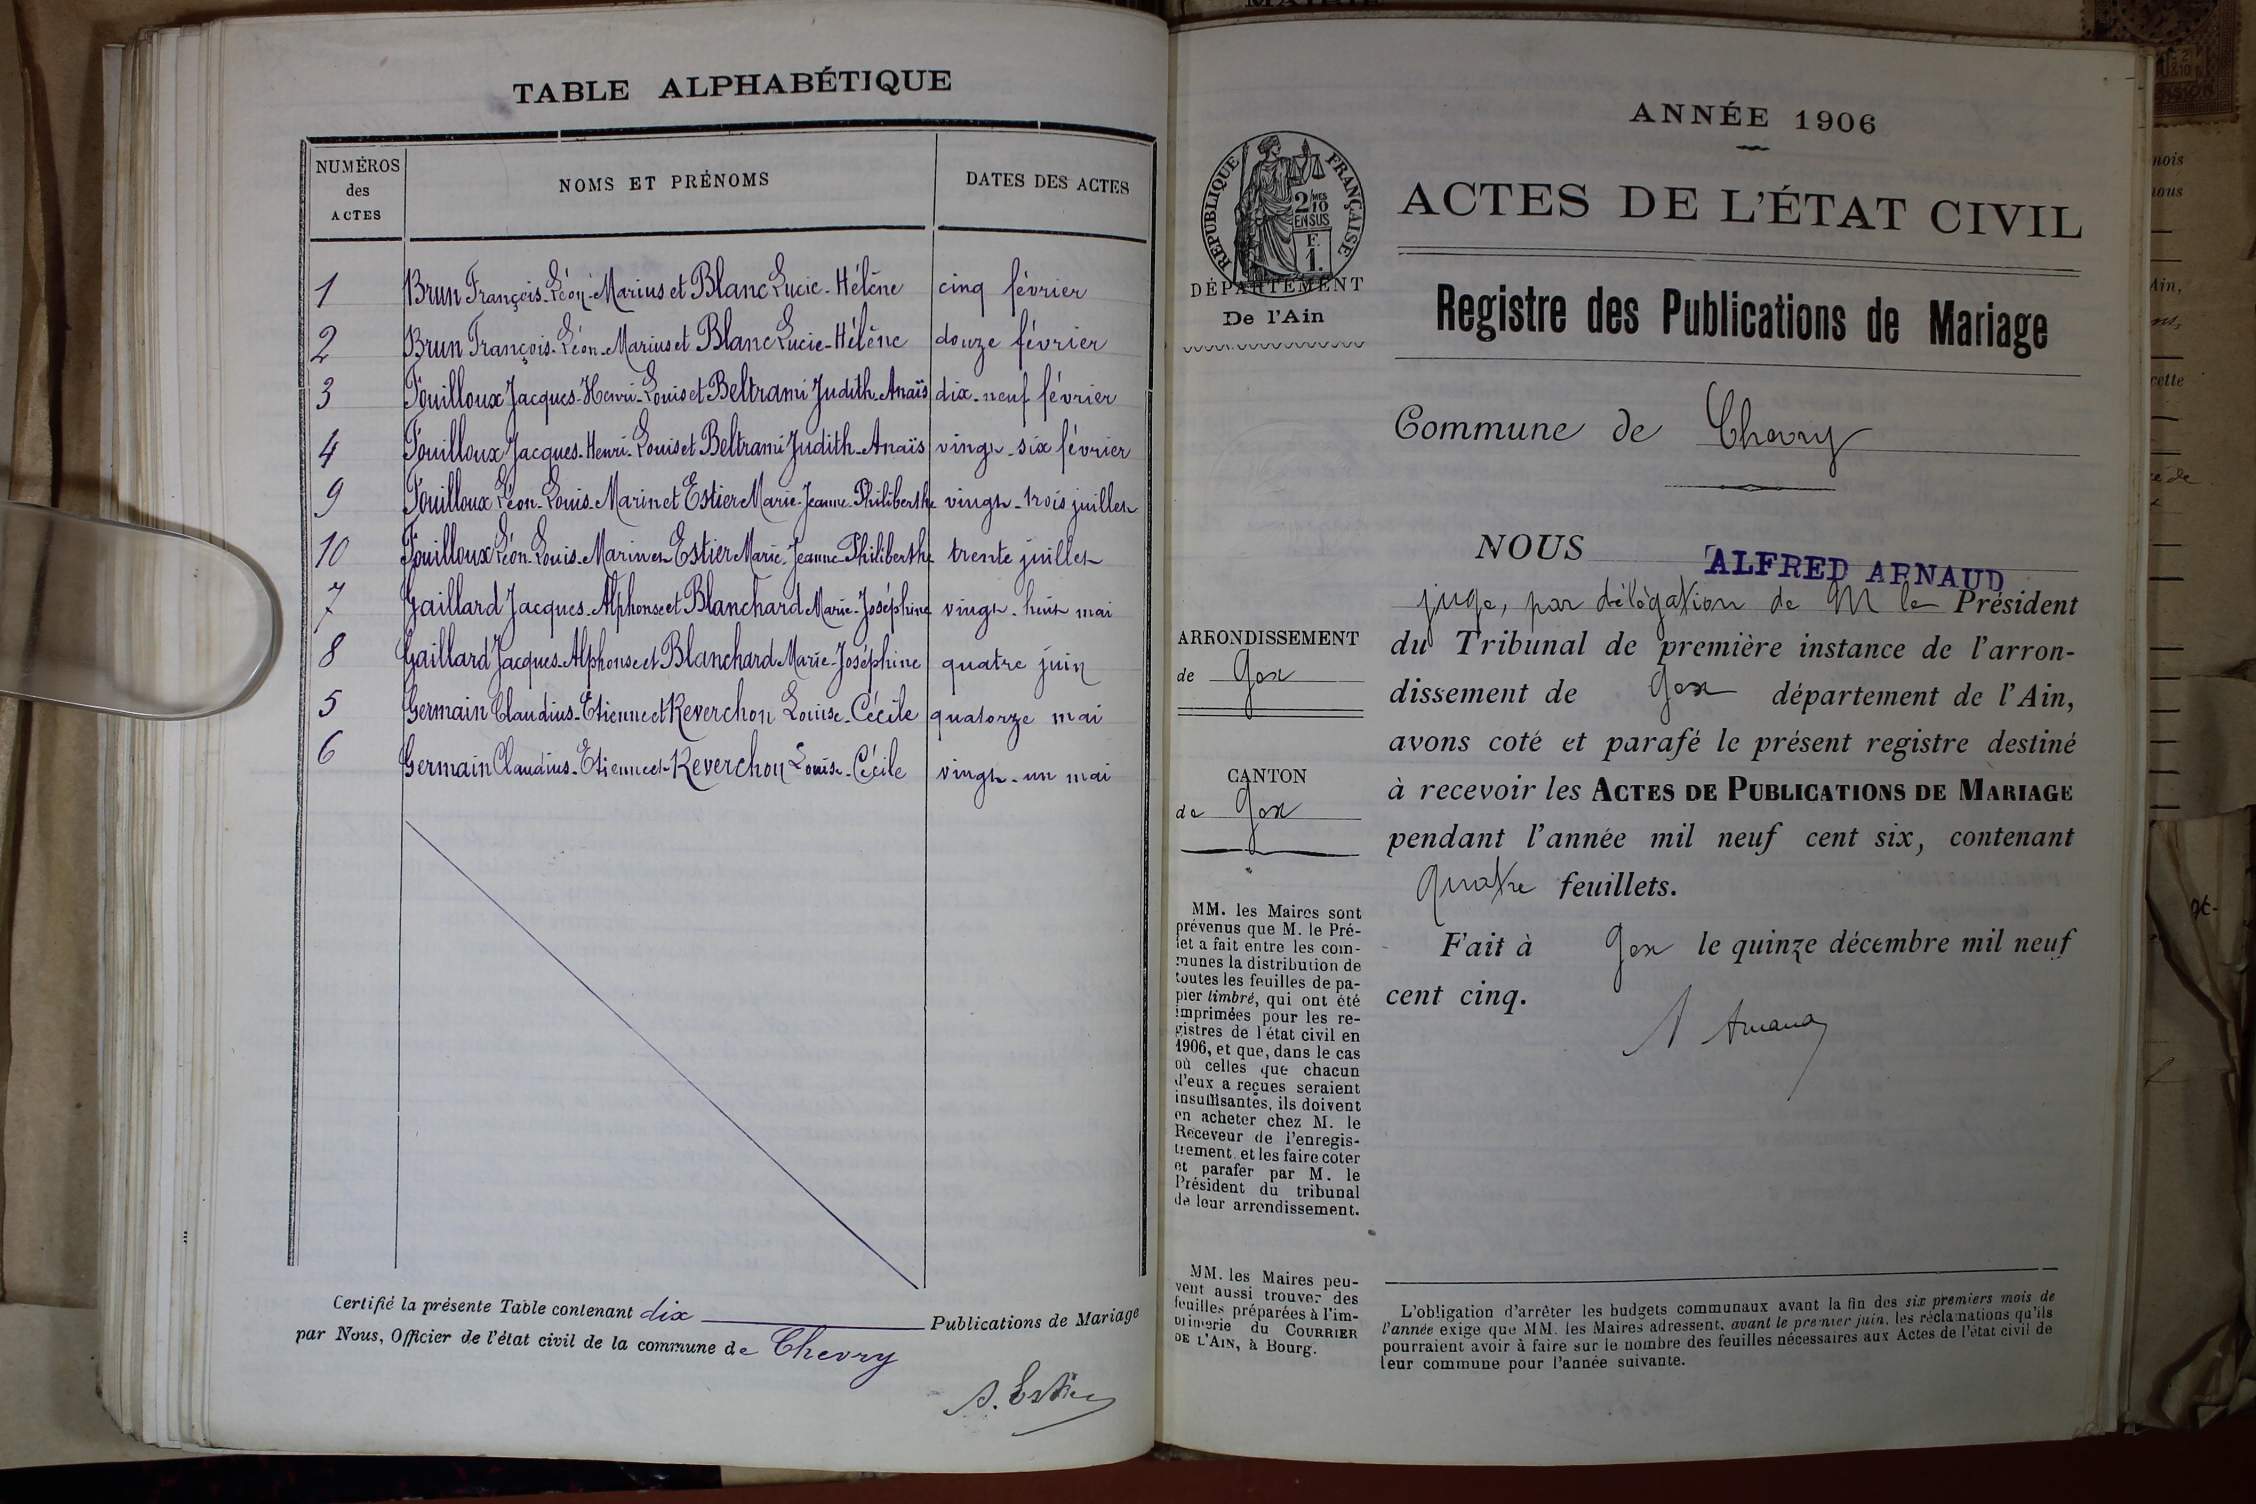 TABLE ALPHABÉTIQUE
NUMÉROS
des
ACTES
NOMS ET PRÉNOMS
DATES DES ACTES
1 Brun François-Léon-Marius et Blanc Lucie-Hélène cinq février
2 Brun François-Léon-Marius et Blanc Lucie-Hélène douze février
3 Fouilloux Jacques-Henri-Louis et Beltrami Judith-Anaïs dix-neuf février
4 Fouilloux Jacques-Henri-Louis et Beltrami Judith-Anaïs vingt-six février
9 Fouilloux Léon-Louis-Marin et Estier Marie-Jeanne-Philiberthe vingt-trois juillet
10 Fouilloux Léon-Louis-Marin et Estier Marie-Jeanne-Philiberthe trente juillet
7 Gaillard Jacques-Alphonse et Blanchard Marie-Joséphine vingt-huit mai
8 Gaillard Jacques-Alphonse et Blanchard Marie-Joséphine quatre juin
5 Germain Claudius-Etienne et Reverchon Louise-Cécile quatorze mai
6 Germain Claudius-Etienne et Reverchon Louise-Cécile vingt-un mai
Certifié la présente Table contenant dix Publications de Mariage
par Nous, Officier de l'état civil de la commune de Chevry
A. Estier
ANNÉE 1906
RÉPUBLIQUE FRANÇAISE
2/MES
10
EN SUS
F.
1.
DÉPARTEMENT
De l'Ain
ACTES DE L'ÉTAT CIVIL
Registre des Publications de Mariage
Commune de Chevry
NOUS ALFRED ARNAUD
juge, par délégation de M le Président
du Tribunal de première instance de l'arron-
dissement de Gex département de l'Ain,
avons coté et parafé le présent registre destiné
à recevoir les ACTES DE PUBLICATIONS DE MARIAGE
pendant l'année mil neuf cent six, contenant
quatre feuillets.
Fait à Gex le quinze décembre mil neuf
cent cinq.
A Arnaud
ARRONDISSEMENT
de Gex
CANTON
de Gex
MM. les Maires sont
prévenus que M. le Pré-
fet a fait entre les com-
munes la distribution de
toutes les feuilles de pa-
pier timbré, qui ont été
imprimées pour les re-
gistres de l'état civil en
1906, et que, dans le cas
où celles que chacun
d'eux a reçues seraient
insuffisantes, ils doivent
en acheter chez M. le
Receveur de l'enregis-
trement, et les faire coter
et parafer par M. le
Président du tribunal
de leur arrondissement.
MM. les Maires peu-
vent aussi trouver des
feuilles préparées à l'im-
primerie du COURRIER
DE L'AIN, à Bourg.
L'obligation d'arrêter les budgets communaux avant la fin des six premiers mois de
l'année exige que MM. les Maires adressent, avant le premier juin, les réclamations qu'ils
pourraient avoir à faire sur le nombre des feuilles nécessaires aux Actes de l'état civil de
leur commune pour l'année suivante.